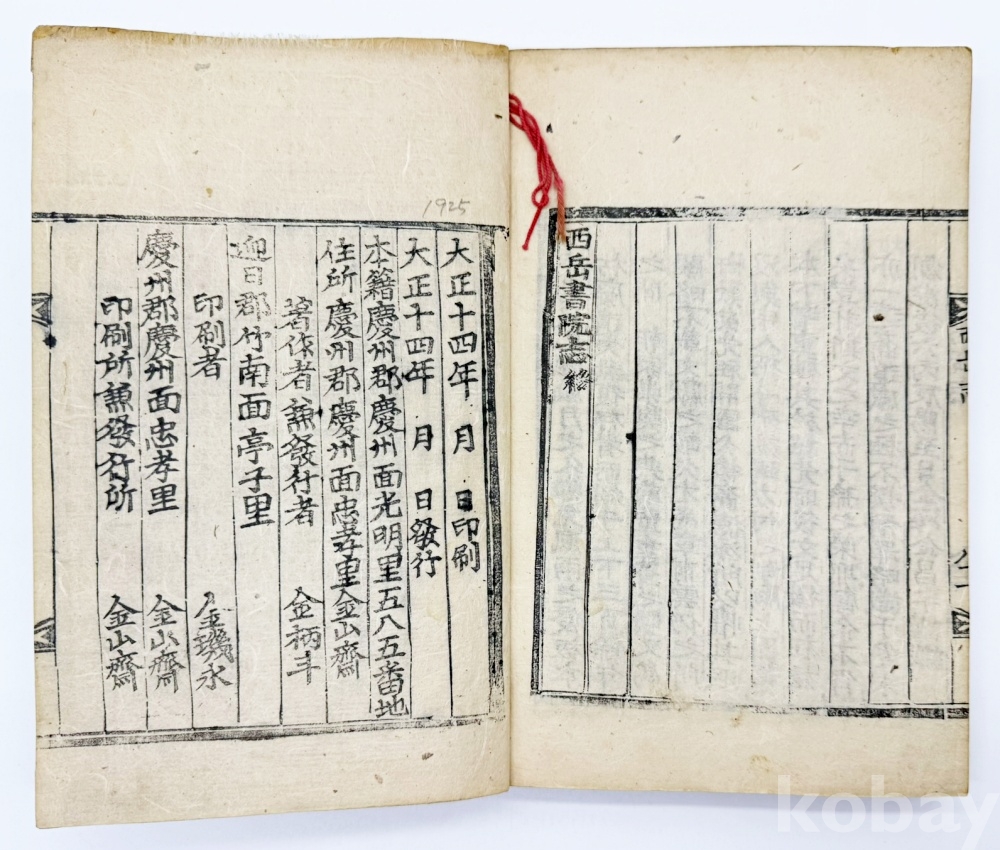 西岳書院志終
1925
大正十四年 月 日印刷
大正十四年 月 日發行
本籍慶州郡慶州面光明里五八五番地
住所慶州郡慶州面忠孝里金山齋
著作者兼發行者 金柄斗
迎日郡竹南面亭子里
印刷者 金璣永
慶州郡慶州面忠孝里 金山齋
印刷所兼發行所 金山齋
kobay